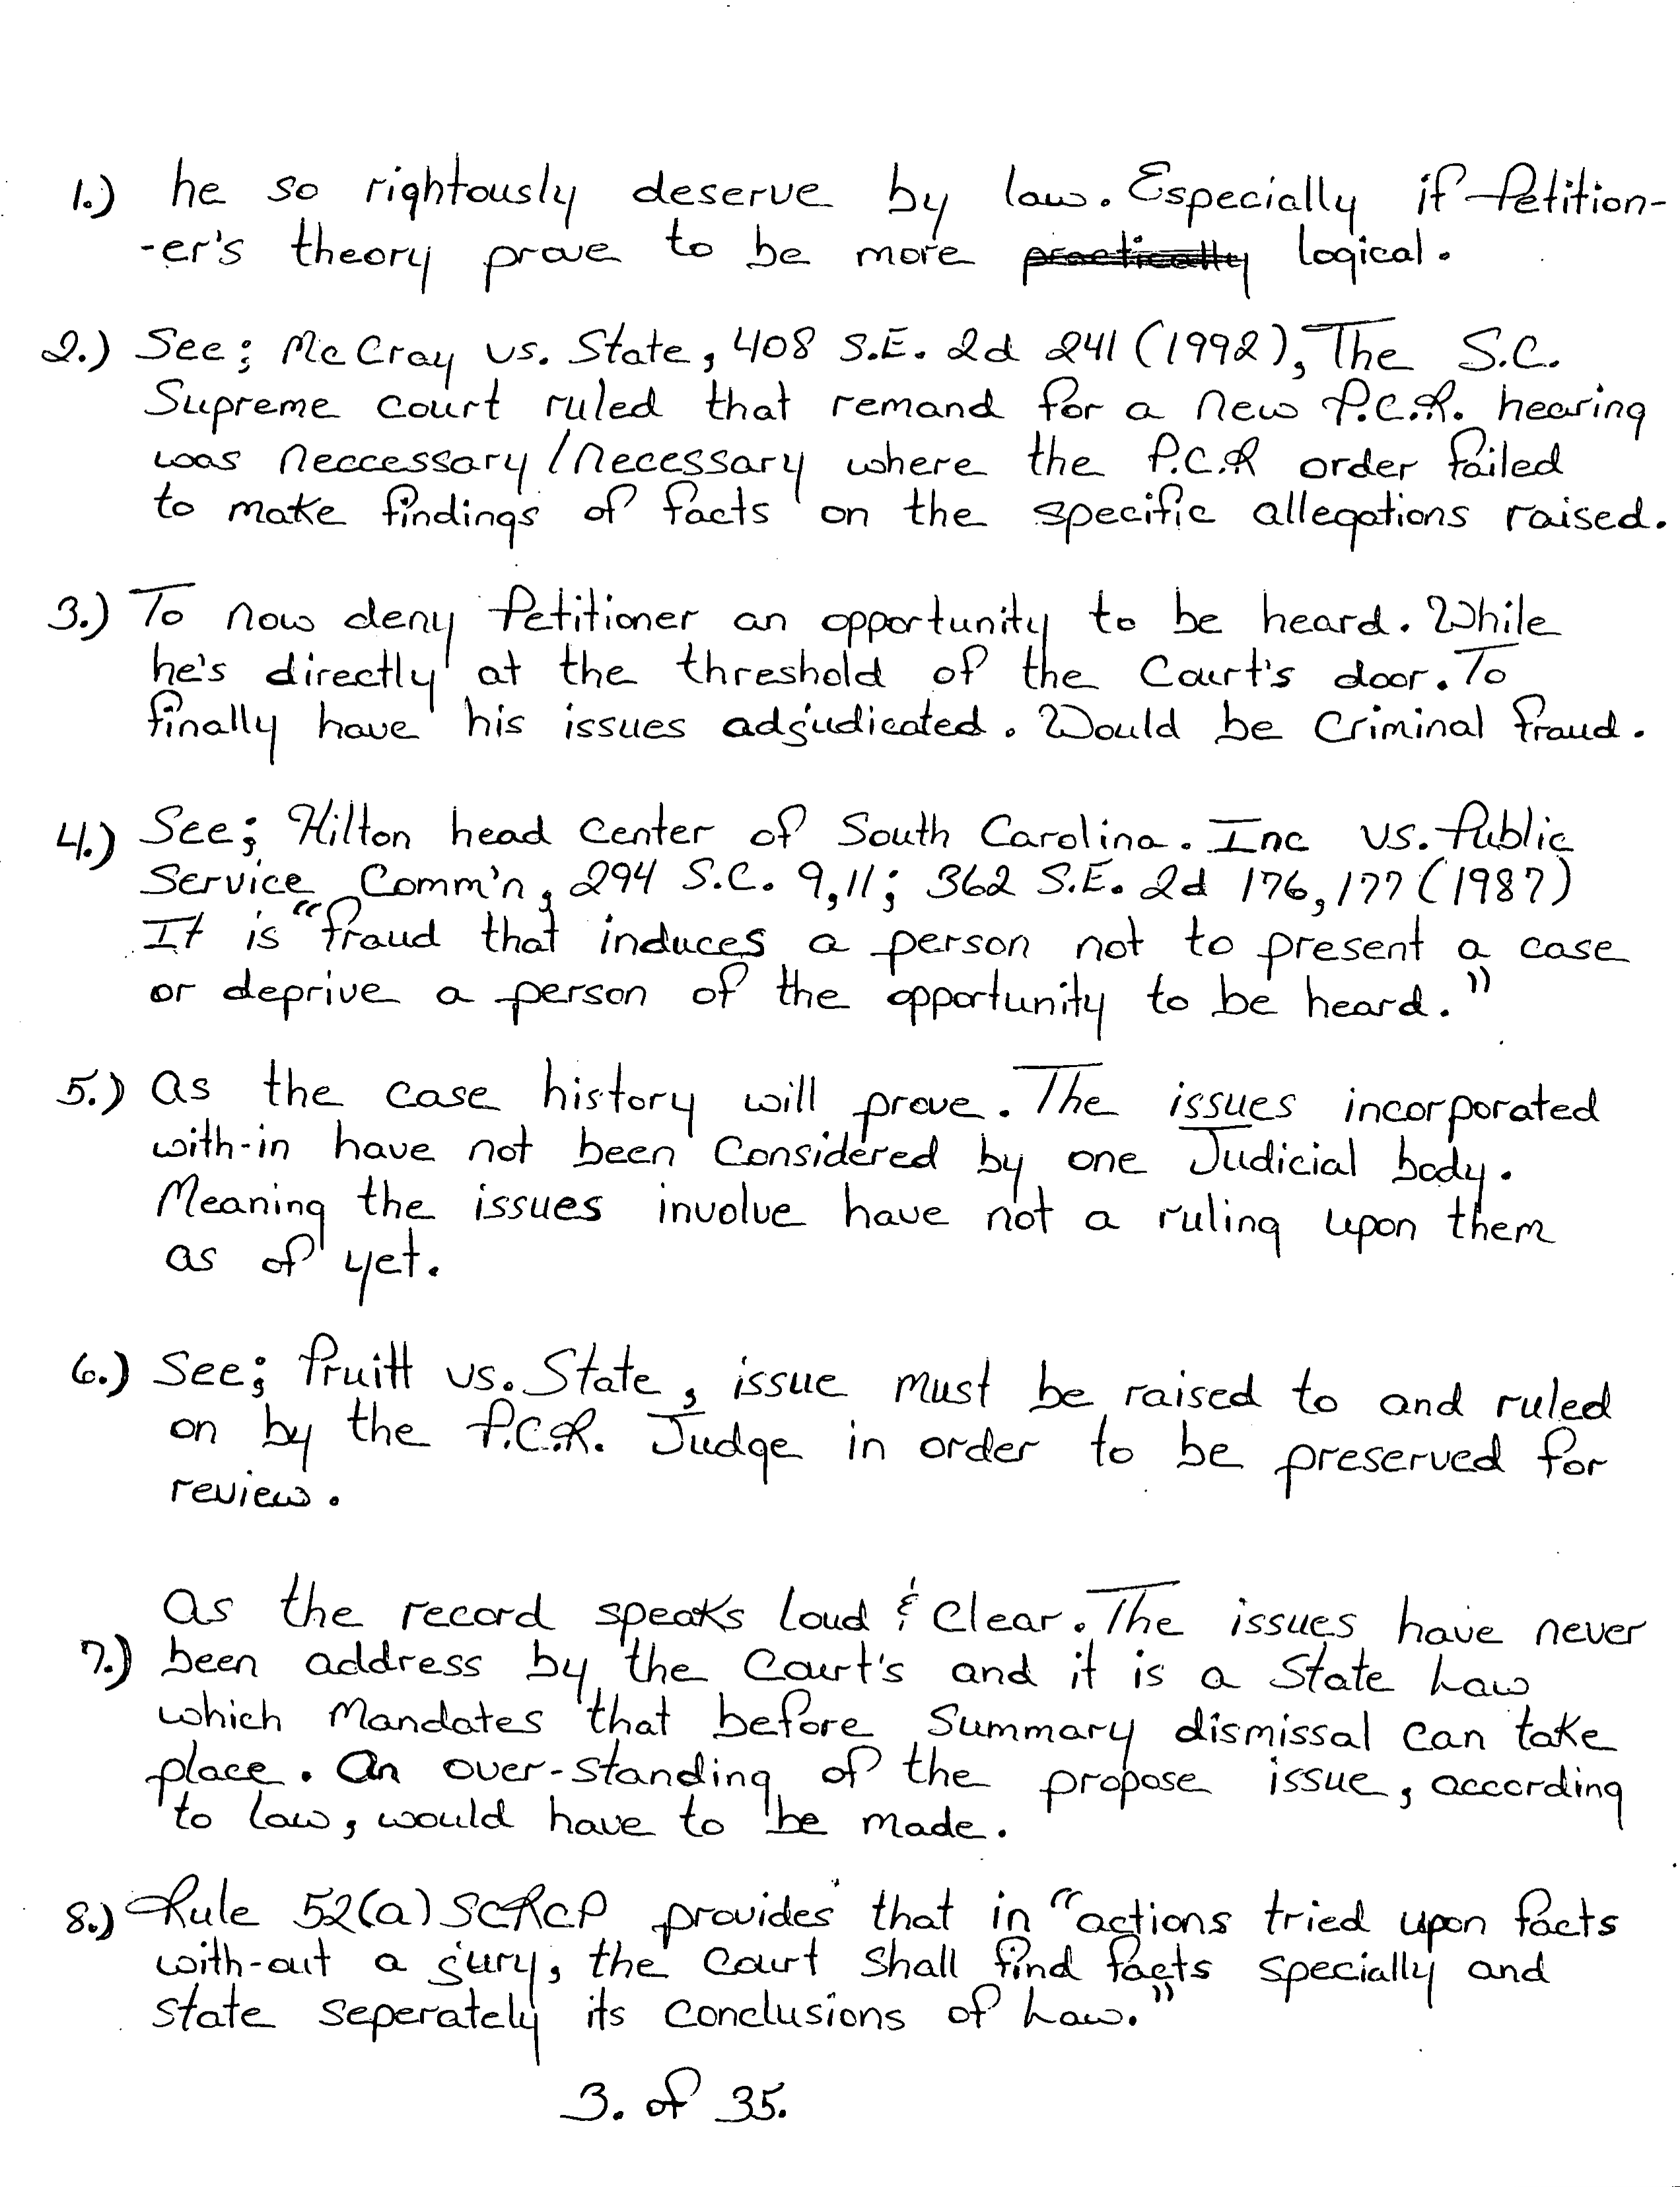 1.) he so rightously deserve by law. Especially if Petition-
-er's theory prove to be more practically logical.
2.) See; McCray vs. State, 408 S.E. 2d 241 (1992), The S.C.
Supreme court ruled that remand for a new P.C.R. hearing
was neccessary/necessary where the P.C.R order failed
to make findings of facts on the specific allegations raised.
3.) To now deny Petitioner an opportunity to be heard. While
he's directly at the threshold of the Court's door. To
finally have his issues adjudicated. Would be Criminal fraud.
4.) See; Hilton head Center of South Carolina. Inc vs. Public
Service Comm'n, 294 S.C. 9,11; 362 S.E. 2d 176,177 (1987)
It is "fraud that induces a person not to present a case
or deprive a person of the opportunity to be heard."
5.) As the case history will prove. The issues incorporated
with-in have not been Considered by one Judicial body.
Meaning the issues involve have not a ruling upon them
as of yet.
6.) See; Pruitt vs. State, issue must be raised to and ruled
on by the P.C.R. Judge in order to be preserved for
review.
As the record speaks loud & Clear. The issues have never
7.) been address by the Court's and it is a State Law
which Mandates that before Summary dismissal can take
place. An over-standing of the propose issue, according
to law, would have to be made.
8.) Rule 52(a) SCRCP provides that in "actions tried upon facts
with-out a jury, the Court Shall find facts specially and
state seperately its conclusions of Law."
3. of 35.